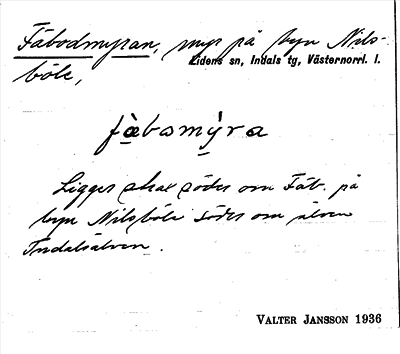 Fäbodmyran, myr på byn Nils-
Lidens sn, Indals tg, Västernorrl. l.
böle,
fàbomýra
Ligger strax söder om Fäb. på
byn Nilsböle söder om älven
Indalsälven.
VALTER JANSSON 1936